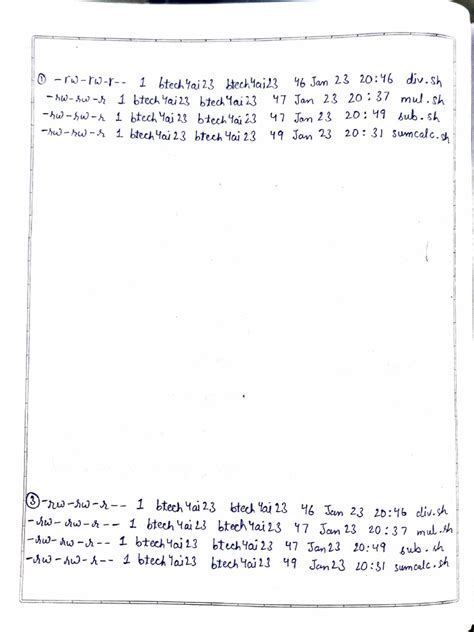 ① -rw-rw-r-- 1 btech4ai23 btech4ai23 46 Jan 23 20:46 div.sh
-rw-rw-r 1 btech4ai23 btech4ai23 47 Jan 23 20:37 mul.sh
-rw-rw-r 1 btech4ai23 btech4ai23 47 Jan 23 20:49 sub.sh
-rw-rw-r 1 btech4ai23 btech4ai23 49 Jan 23 20:31 sumcalc.sh
③ -rw-rw-r-- 1 btech4ai23 btech4ai23 46 Jan 23 20:46 div.sh
-rw-rw-r-- 1 btech4ai23 btech4ai23 47 Jan 23 20:37 mul.sh
-rw-rw-r-- 1 btech4ai23 btech4ai23 47 Jan 23 20:49 sub.sh
-rw-rw-r-- 1 btech4ai23 btech4ai23 49 Jan 23 20:31 sumcalc.sh